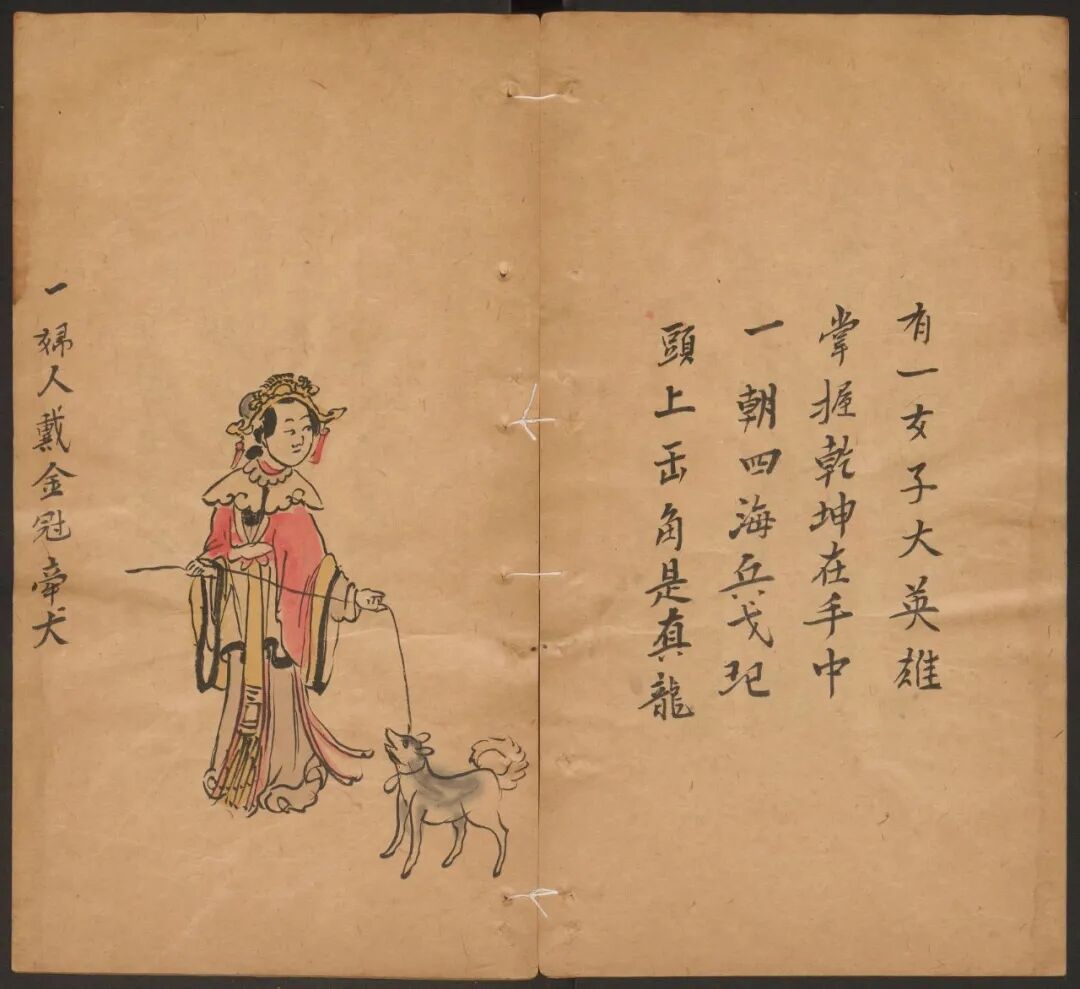 有一女子大英雄
掌握乾坤在手中
一朝四海兵戈犯
頭上缶角是真龍
一婦人戴金冠牽犬